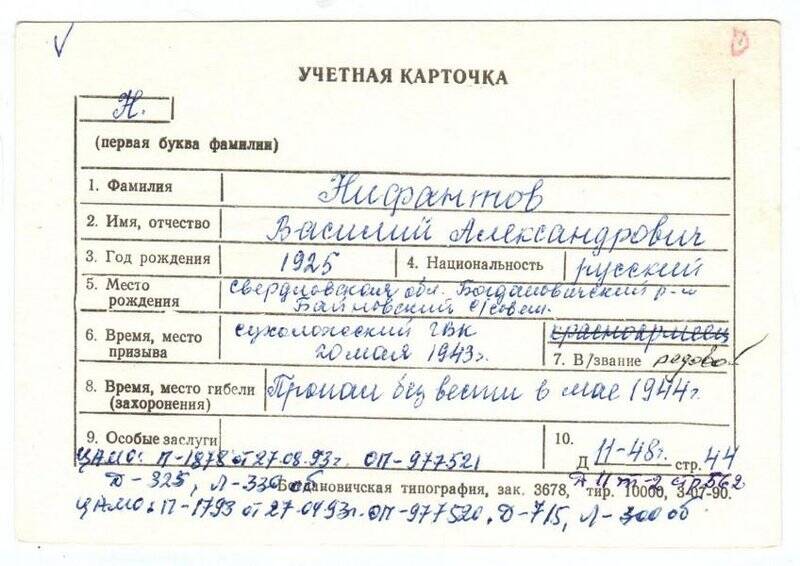 УЧЕТНАЯ КАРТОЧКА
Н.
(первая буква фамилии)
1. Фамилия Нифантов
2. Имя, отчество Василий Александрович
3. Год рождения 1925 4. Национальность русский
5. Место рождения Свердловская обл. Богдановичский р-н
Байновский с/совет.
6. Время, место призыва Сухоложский ГВК
20 мая 1943г.
красноармеец
7. В/звание рядовой
8. Время, место гибели (захоронения) Пропал без вести в мае 1944г.
9. Особые заслуги
10.
Д 11-48г. стр. 44
ЦАМО: П-1878 от 27.08.93г. ОП-977521
Д-325, Л-330 об
Д 11 т-2 стр 562
Богдановичская типография, зак. 3678, тир. 10000, 3-07-90.
ЦАМО: П-1793 от 27.04.93г. ОП-977520, Д-715, Л-300 об